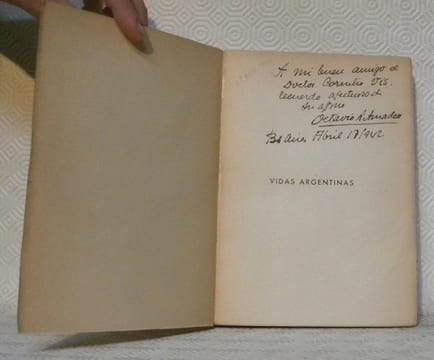 A mi buen amigo el
Doctor Cornelio Vis.
recuerdo afectuoso de
su afmo
Octavio R. Amadeo
Bs Aires Abril 17/942
VIDAS ARGENTINAS